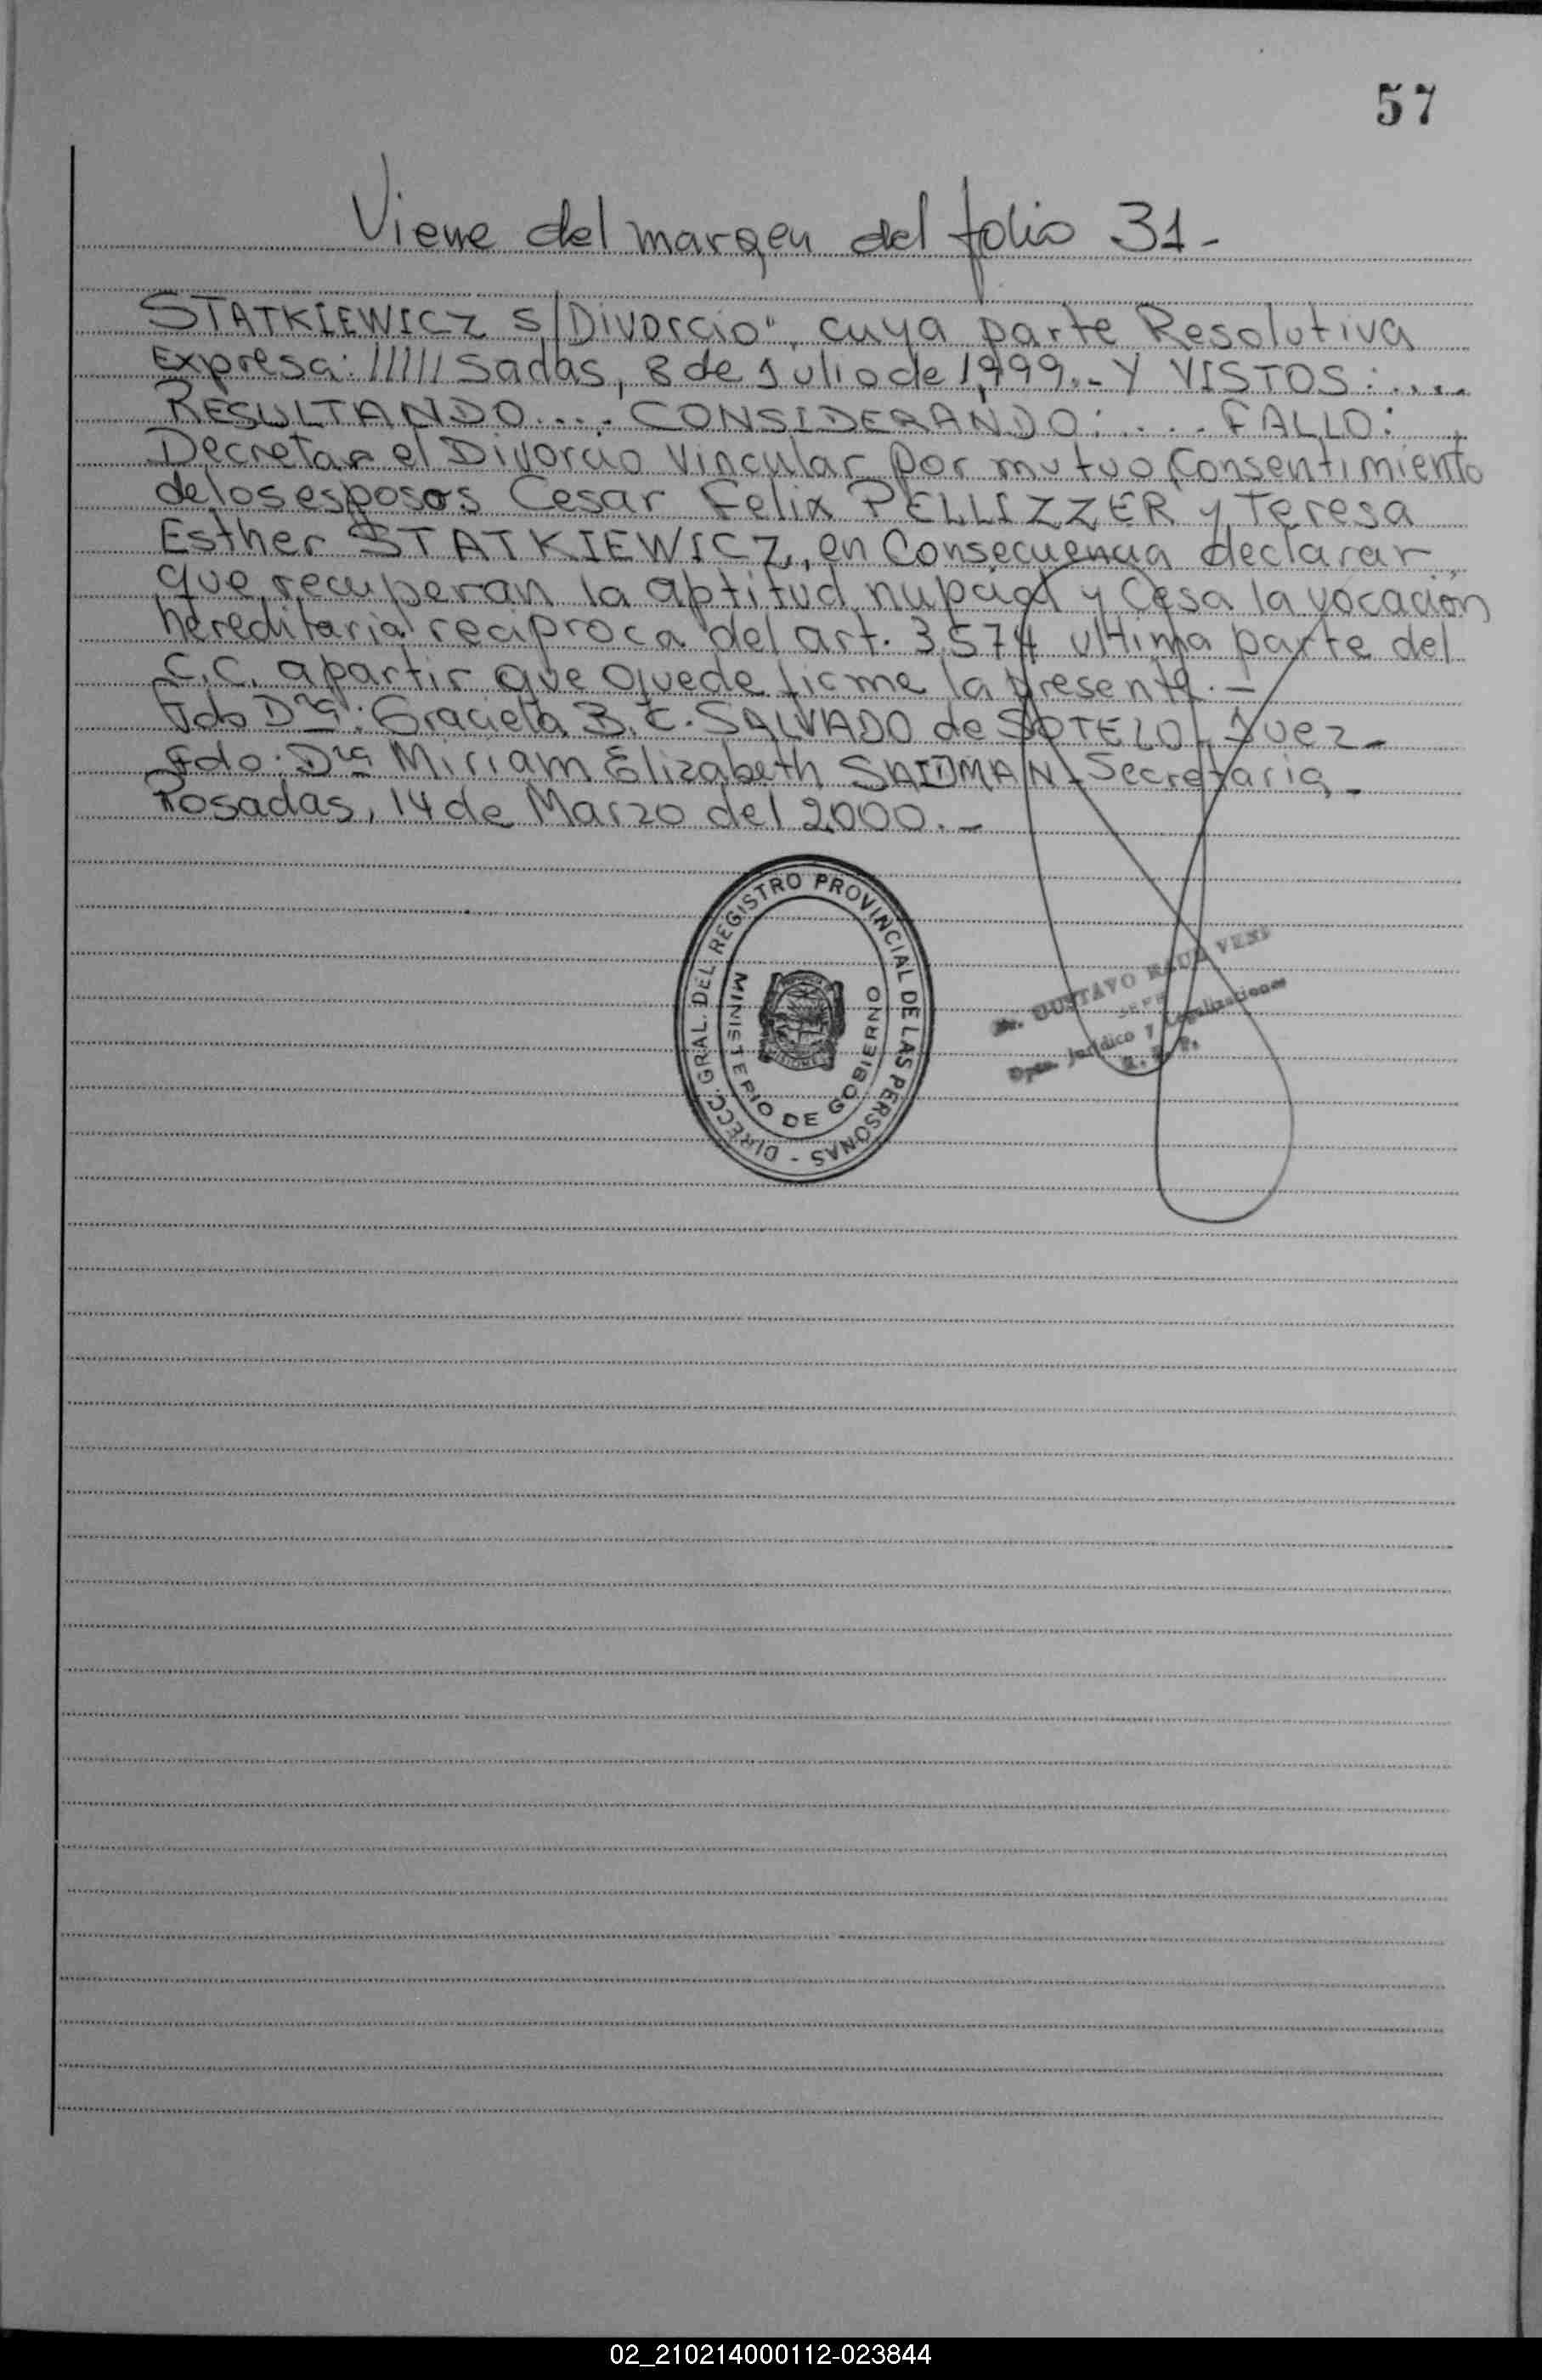 57
Viene del margen del folio 31-
STATKIEWICZ S/Divorcio", cuya parte Resolutiva
Expresa: /////sadas, 8 de Julio de 1,999.- Y VISTOS:....
RESULTANDO.... CONSIDERANDO:.... FALLO:
Decretar el Divorcio Vincular por mutuo Consentimiento
de los esposos Cesar Felix PELLIZZER y Teresa
Esther STATKIEWICZ, en Consecuencia declarar
que recuperan la aptitud nupcial y Cesa la vocacion
hereditaria reciproca del art. 3,574 ultima parte del
C.C. apartir que quede firme la presente.-
Fdo Dra: Graciela B. C. SALVADO de SOTELO - Juez-
Fdo: Dra Miriam Elizabeth SAIDMAN - Secretaria-
Posadas, 14 de Marzo del 2000.-
DIRECC. GRAL. DEL REGISTRO PROVINCIAL DE LAS PERSONAS -
MINISTERIO DE GOBIERNO
Dr. GUSTAVO RAUL
JEFE
Dpto. Jurídico y Legalizaciones
R. P. P.
02_210214000112-023844